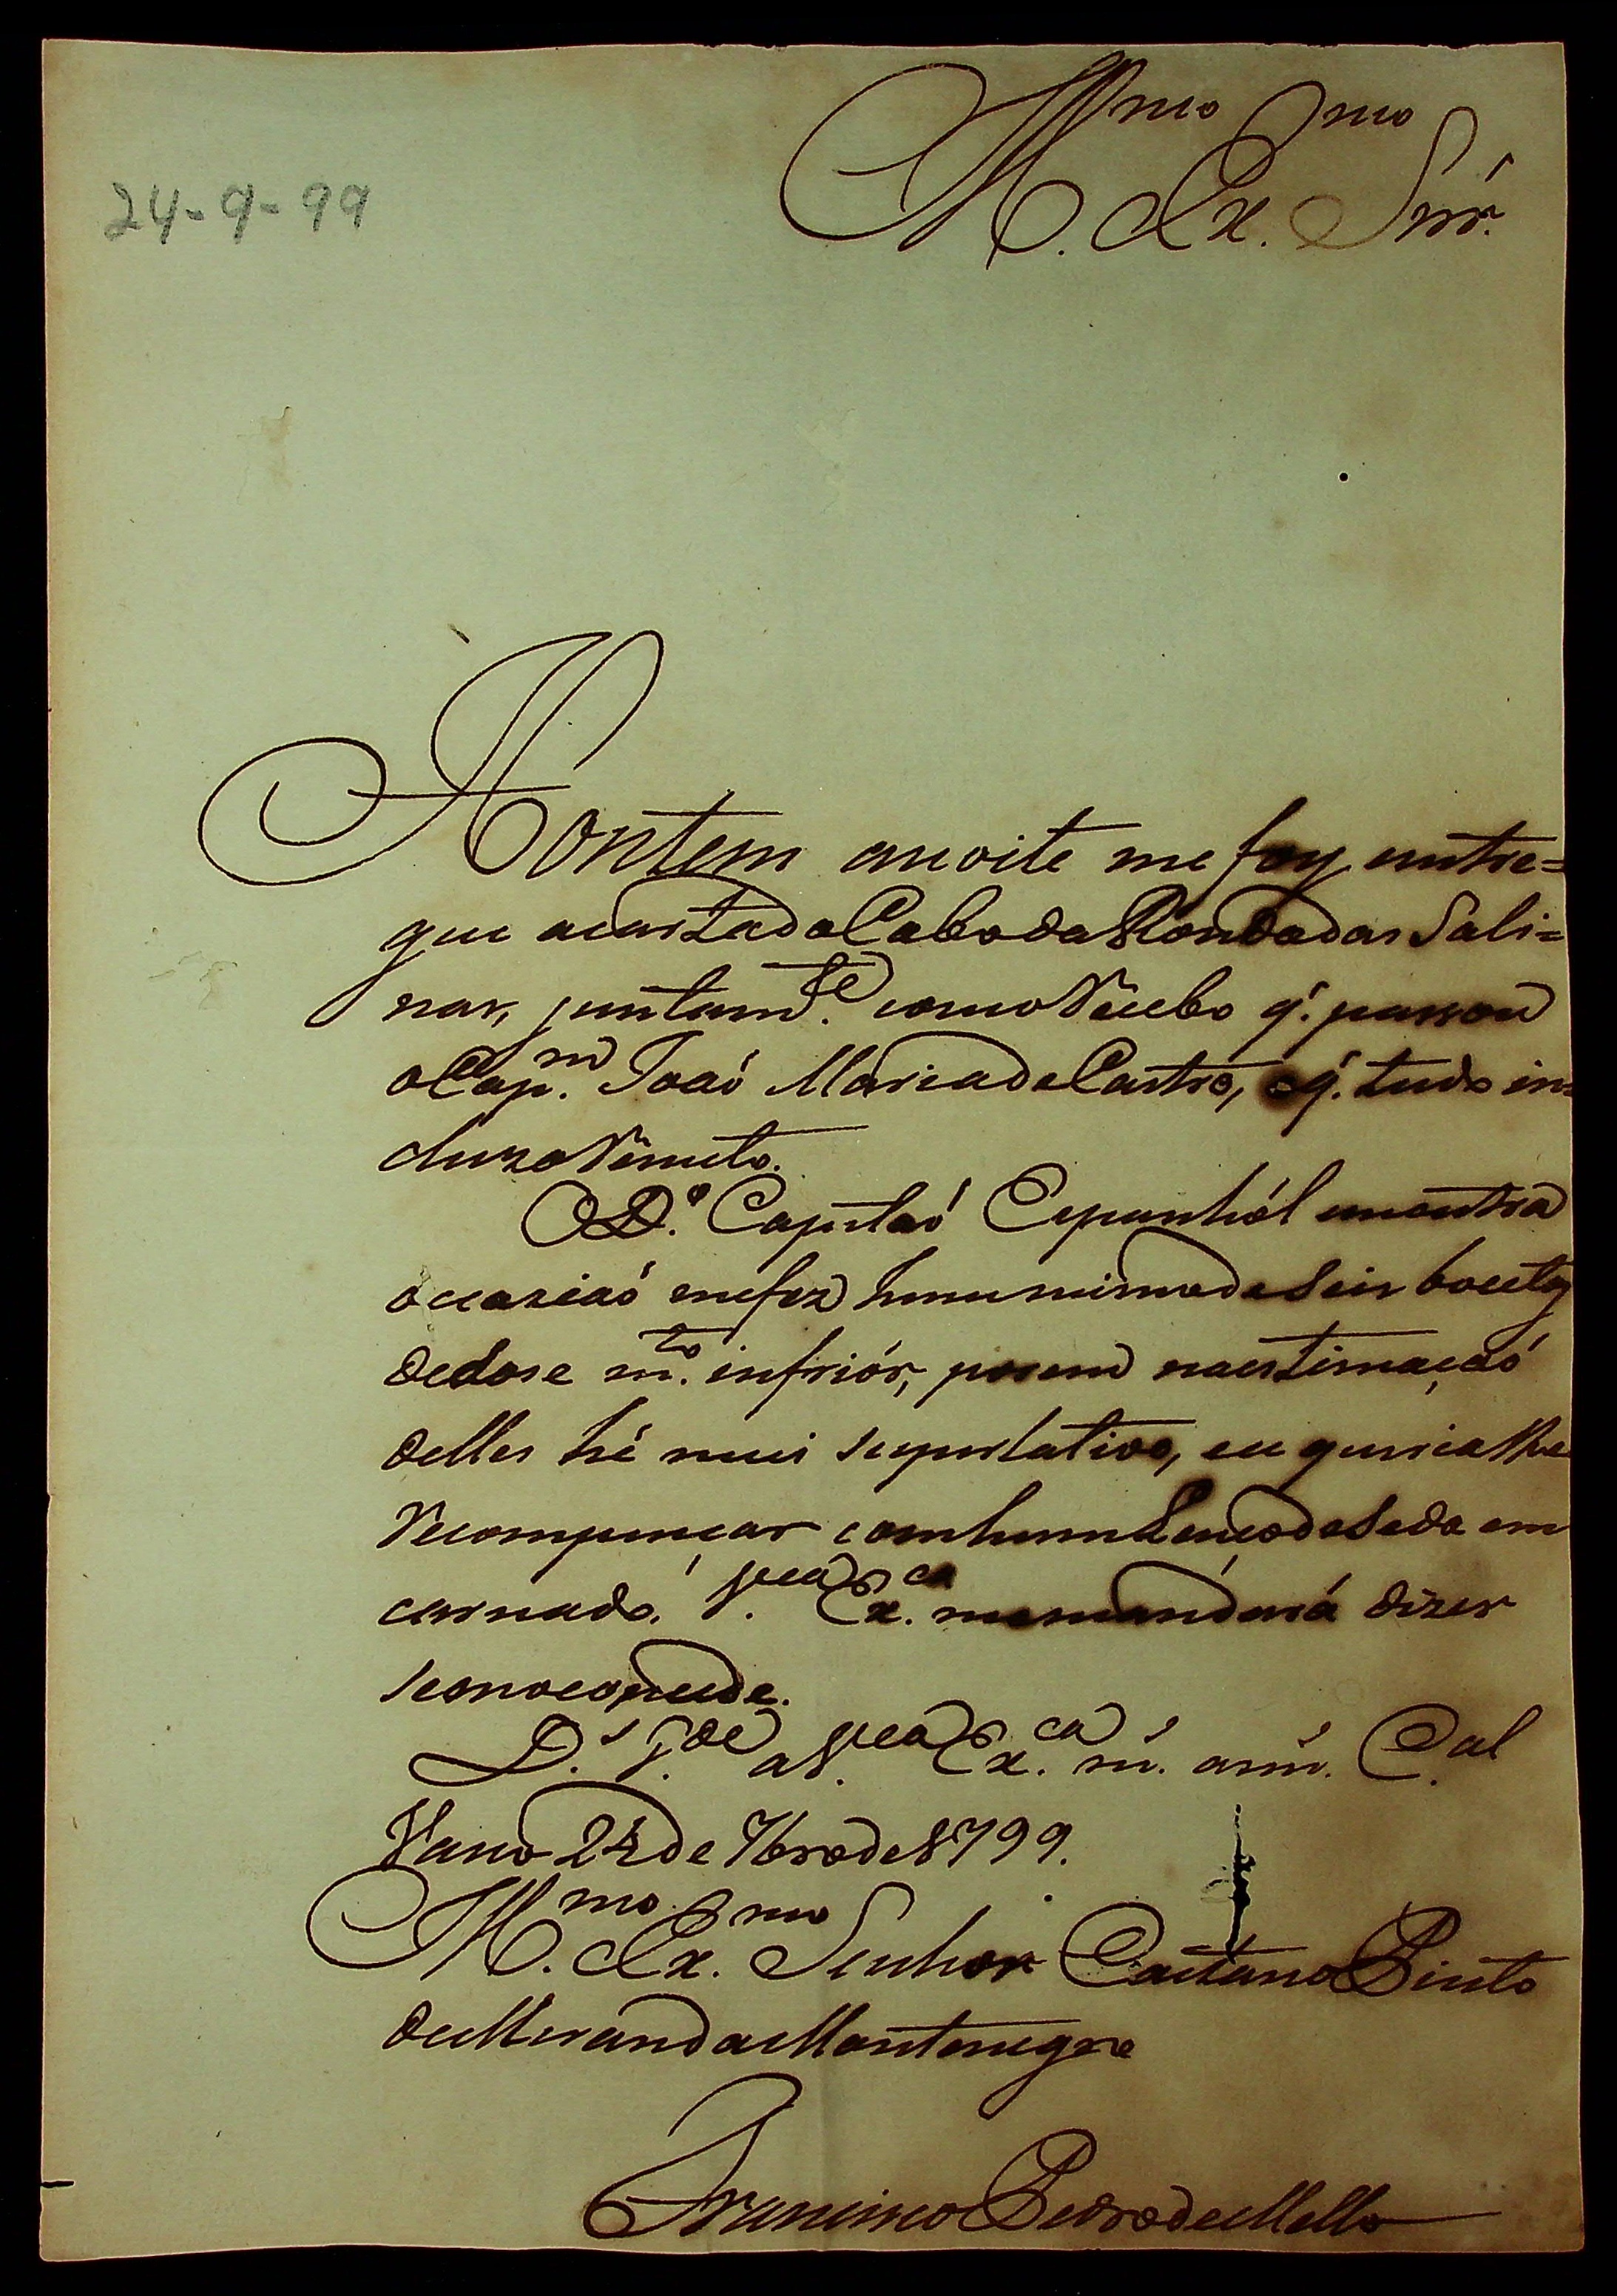 Ill.mo Ex.mo Snr.
24-9-99
Hontem anoite me foy entre=
gue acarta do Cabo da Ronda das Sali=
nas, juntam.te como Recebo q.' passou
o Cap.m Joaó Maria de Castro, oq.' tudo in=
cluzo Remeto.
O D.o Capitaó Espanhól emoutra
occaziaó mefez hum mimo de Seis boceta
dedose m.to infriór, porem naestimaçaó
delles hé mui superlativo, eu queria lhe
Recompençar comhum Lenço de Seda em
carnado. V. Ex.ca memandará dizer
seonaco
D.s g.de a V. Ex.ca m.s ann.s C.al
24 de 7bro de 1799.
Ill.mo Ex.mo Senhor Caetano Pinto
de Miranda Montenegro
Francisco Pedro de Mello